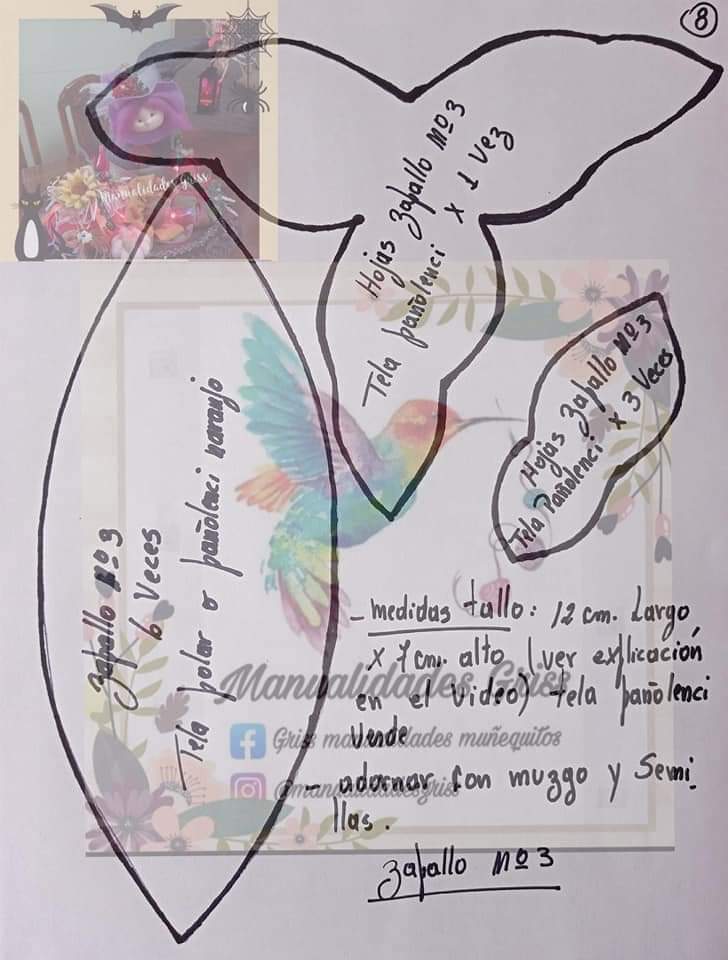 8
Manualidades Griss
Hojas Zapallo Nº 3
Tela pañolenci x 1 Vez
Hojas Zapallo Nº 3
Tela Pañolenci x 3 Veces
Zapallo Nº 3
6 Veces
Tela polar o pañolenci naranjo
- medidas tallo: 12 cm. Largo
x 7 cm. alto (ver explicación
en el video) tela pañolenci
Verde
- adornar con muzgo y Semi
llas.
Zapallo Nº 3
Manualidades Griss
Griss manualidades muñequitos
@manualidadesgriss